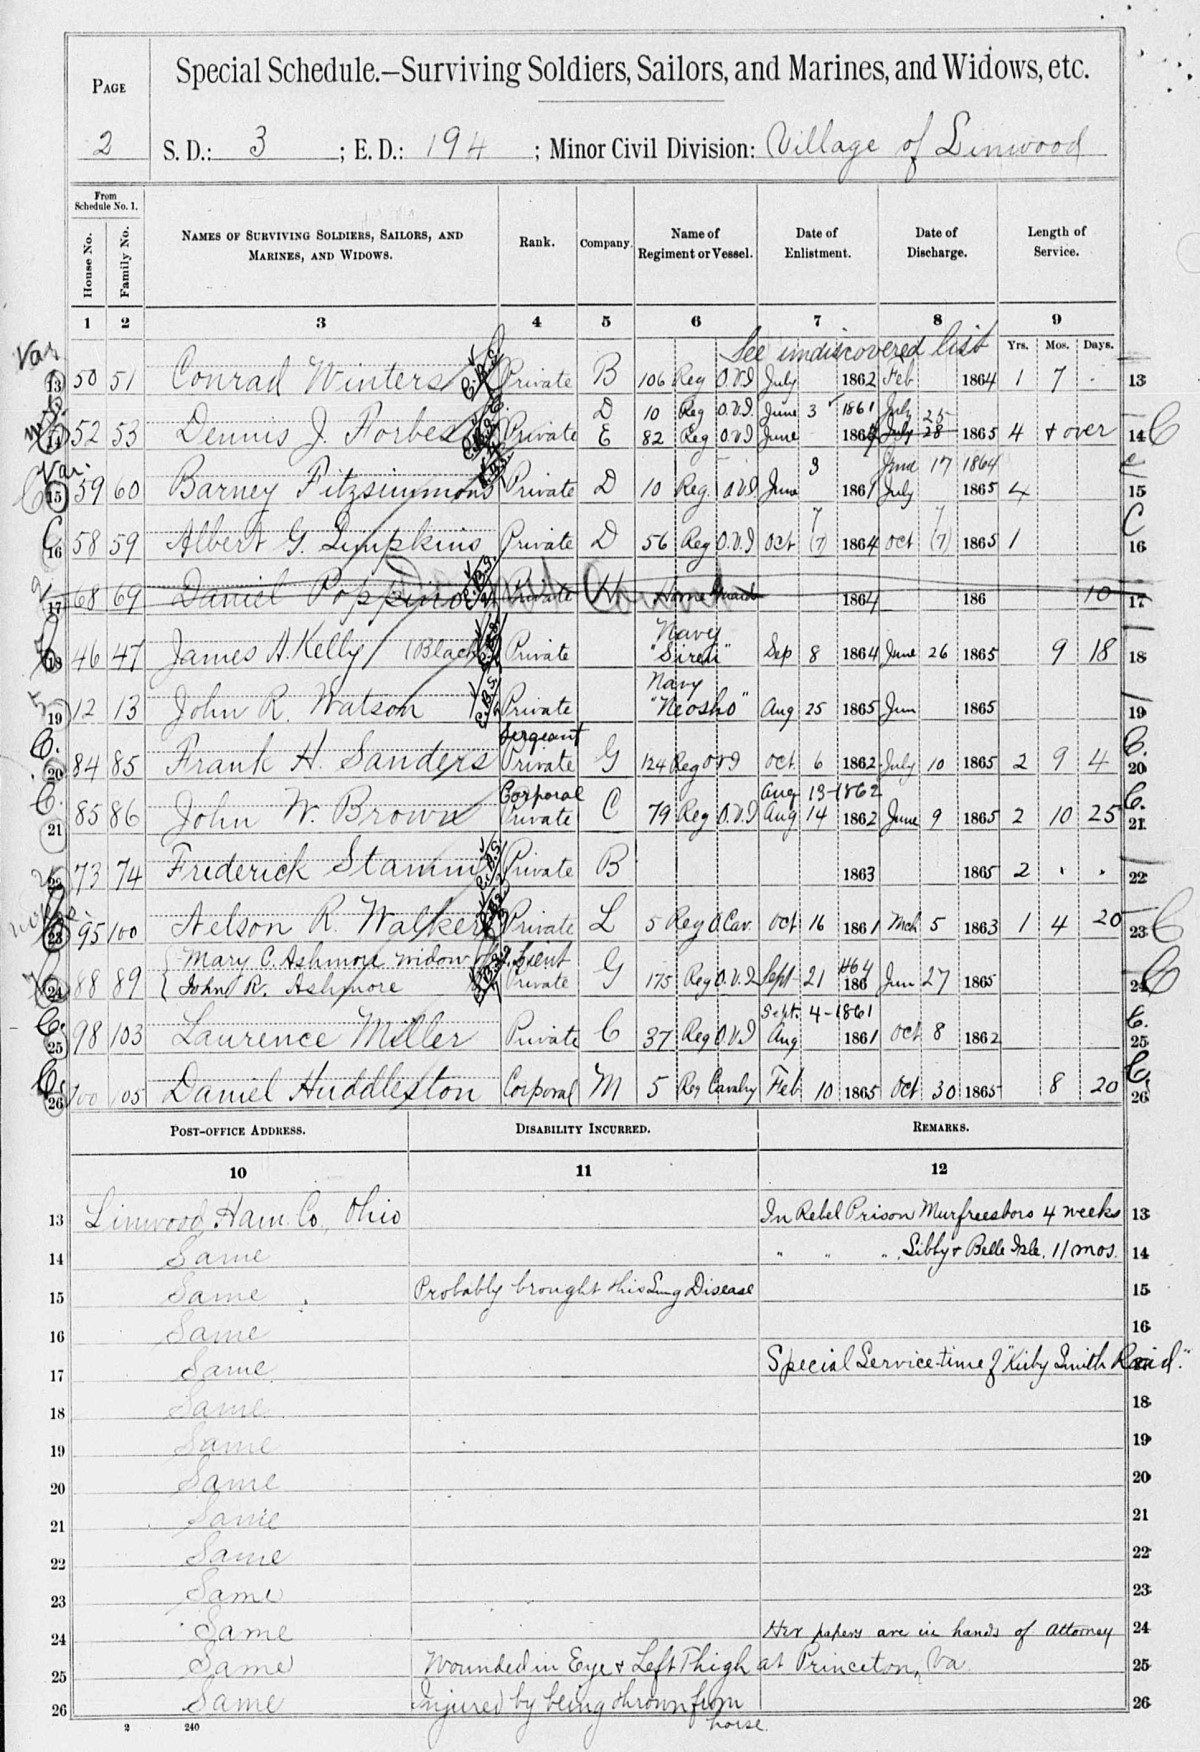 Special Schedule.—Surviving Soldiers, Sailors, and Marines, and Widows, etc.
PAGE 2
S. D.: 3 ; E. D.: 194 ; Minor Civil Division: Village of Linwood
From Schedule No. 1.
House No. Family No. NAMES OF SURVIVING SOLDIERS, SAILORS, AND MARINES, AND WIDOWS. Rank. Company. Name of Regiment or Vessel. Date of Enlistment. Date of Discharge. Length of Service.
1 2 3 4 5 6 7 8 9
See undiscovered list
Yrs. Mos. Days.
Var
13 50 51 Conrad Winters Private B 106 Reg O.V.I July 1862 Feb 1864 1 7 . 13
D 10 Reg O.V.I. June 3 1861 July 25
14 52 53 Dennis J. Forbes Private E 82 Reg O.V.I June 186 July 28 1865 4 + over 14 C
Var. 3 June 17 1864
15 59 60 Barney Fitzsimmons Private D 10 Reg. O.V.I June 1861 July 1865 4 15
7 7 C
C 16 58 59 Albert G. Limpkins Private D 56 Reg O.V.I Oct (7) 1864 Oct (7) 1865 1 16
17 68 69 Daniel Poppino Private H Home Guard 1864 186 10 17
Navy
18 46 47 James A. Kelly (Black) Private "Siren" Sep 8 1864 June 26 1865 9 18 18
Navy
19 12 13 John R. Watson Private "Neosho" Aug 25 1865 Jun 1865 19
C. Sergeant C.
20 84 85 Frank H. Sanders Private G 124 Reg O V I Oct. 6 1862 July 10 1865 2 9 4 20
C. Corporal Aug 13-1862 C.
21 85 86 John W. Brown Private C 79 Reg O.V.I Aug 14 1862 June 9 1865 2 10 25 21
22 73 74 Frederick Stamm Private B 1863 1865 2 . . 22
23 95 100 Nelson R. Walker Private L 5 Reg O. Cav. Oct 16 1861 Mch 5 1863 1 4 20 23 C
Mary C. Ashmore widow of Lieut
24 88 89 John R. Ashmore Private G 175 Reg O.V.I Sept 21 186 Jun 27 1865 24 C
C. Sept. 4-1861 C.
25 98 103 Laurence Miller Private C 37 Reg O.V.I Aug 1861 Oct 8 1862 25
C. C.
26 100 105 Daniel Huddleston Corporal M 5 Reg Cavalry Feb 10 1865 Oct 30 1865 8 20 26
POST-OFFICE ADDRESS. DISABILITY INCURRED. REMARKS.
10 11 12
13 Linwood Ham. Co., Ohio In Rebel Prison Murfreesboro 4 weeks 13
14 Same " " " Libby + Belle Isle. 11 mos. 14
15 Same Probably brought this Lung Disease 15
16 Same 16
17 Same Special Service-time of "Kirby Smith Raid." 17
18 Same 18
19 Same 19
20 Same 20
21 Same 21
22 Same 22
23 Same 23
24 Same Her papers are in hands of Attorney 24
25 Same Wounded in Eye + Left Thigh at Princeton, Va 25
26 Same Injured by being thrown from 26
horse.
2 240